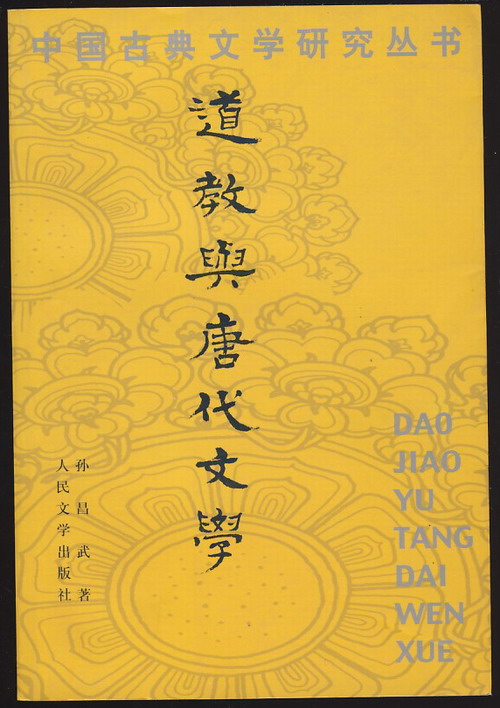 中国古典文学研究丛书
道教與唐代文學
孙昌武著
人民文学出版社
DAO
JIAO
YU
TANG
DAI
WEN
XUE